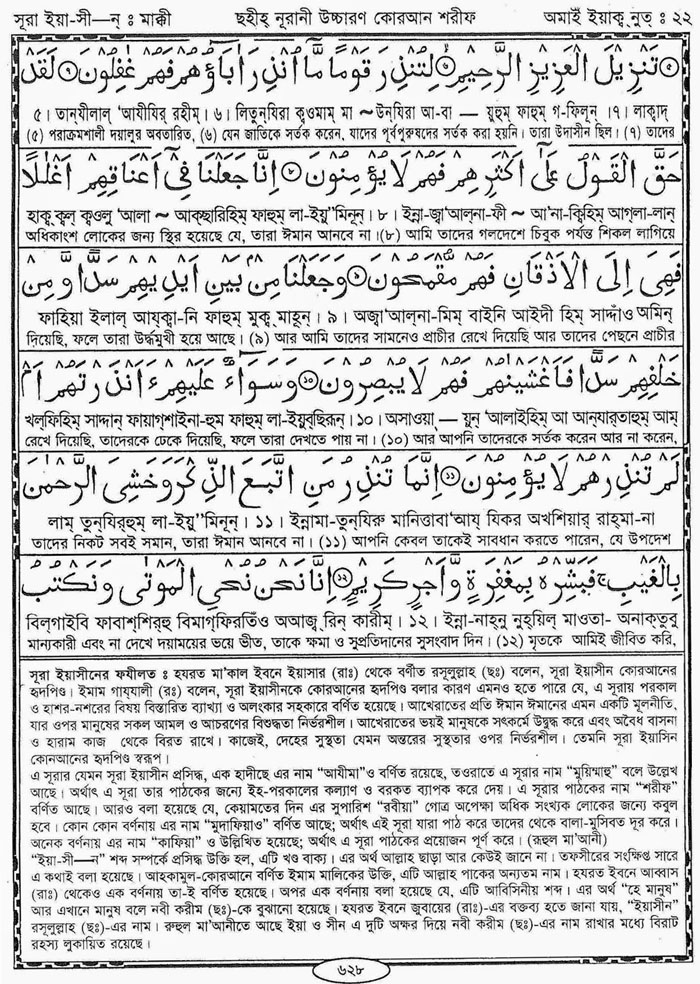 সূরা ইয়া-সী—ন্ : মাক্কী ছহীহ্ নূরানী উচ্চারণ কোরআন শরীফ অমাইঁ ইয়াক্ব্ নুত্ : ২২
تَنْزِيْلَ الْعَزِيْزِ الرَّحِيْمِ ۝ لِتُنْذِرَ قَوْمًا مَّا اُنْذِرَ اٰبَاؤُهُمْ فَهُمْ غٰفِلُوْنَ ۝ لَقَدْ
৫। তান্‌যীলাল্ ‘আযীযির্ রহীম্। ৬। লিতুন্‌যিরা ক্বওমাম্ মা ~ উন্‌যিরা আ-বা — য়ুহুম্ ফাহুম্ গ-ফিলূন্ । ৭। লাক্বদ্
(৫) পরাক্রমশালী দয়ালুর অবতারিত, (৬) যেন জাতিকে সর্তক করেন, যাদের পূর্বপুরুষদের সর্তক করা হয়নি। তারা উদাসীন ছিল। (৭) তাদের
حَقَّ الْقَوْلُ عَلٰٓى اَكْثَرِهِمْ فَهُمْ لَا يُؤْمِنُوْنَ ۝ اِنَّا جَعَلْنَا فِيْٓ اَعْنَاقِهِمْ اَغْلٰلًا
হাক্ব্ ক্বল্ ক্বওলু ‘আলা ~ আক্‌ছারিহিম্ ফাহুম্ লা-ইয়ু’’মিনূন্। ৮। ইন্না-জ্বা‘আল্‌না-ফী ~ আ‘না-ক্বিহিম্ আগ্‌লা-লান্
অধিকাংশ লোকের জন্য স্থির হয়েছে যে, তারা ঈমান আনবে না।(৮) আমি তাদের গলদেশে চিবুক পর্যন্ত শিকল লাগিয়ে
فَهِيَ اِلَى الْاَذْقَانِ فَهُمْ مُّقْمَحُوْنَ ۝ وَجَعَلْنَا مِنْۢ بَيْنِ اَيْدِيْهِمْ سَدًّا وَّمِنْ
ফাহিয়া ইলাল্ আয্‌ক্বা-নি ফাহুম্ মুক্ব্ মাহূন্। ৯। অজ্বা‘আল্‌না-মিম্ বাইনি আইদী হিম্ সাদ্দাঁও অমিন্
দিয়েছি, ফলে তারা উর্দ্ধমুখী হয়ে আছে। (৯) আর আমি তাদের সামনেও প্রাচীর রেখে দিয়েছি আর তাদের পেছনে প্রাচীর
خَلْفِهِمْ سَدًّا فَاَغْشَيْنٰهُمْ فَهُمْ لَا يُبْصِرُوْنَ ۝ وَسَوَآءٌ عَلَيْهِمْ ءَاَنْذَرْتَهُمْ اَمْ
খল্‌ফিহিম্ সাদ্দান্ ফায়াগ্‌শাইনা-হুম ফাহুম্ লা-ইয়ুব্‌ছিরূন্। ১০। অসাওয়া — য়ুন্ ‘আলাইহিম্ আ আন্‌যার্‌তাহুম্ আম্
রেখে দিয়েছি, তাদেরকে ঢেকে দিয়েছি, ফলে তারা দেখতে পায় না। (১০) আর আপনি তাদেরকে সর্তক করেন আর না করেন,
لَمْ تُنْذِرْهُمْ لَا يُؤْمِنُوْنَ ۝ اِنَّمَا تُنْذِرُ مَنِ اتَّبَعَ الذِّكْرَ وَخَشِيَ الرَّحْمٰنَ
লাম্ তুন্‌যির্‌হুম্ লা-ইয়ু’’মিনূন্। ১১। ইন্নামা-তুন্‌যিরু মানিত্তাবা‘আয্ যিকর অখশিয়ার্ রাহ্‌মা-না
তাদের নিকট সবই সমান, তারা ঈমান আনবে না। (১১) আপনি কেবল তাকেই সাবধান করতে পারেন, যে উপদেশ
بِالْغَيْبِ ۚ فَبَشِّرْهُ بِمَغْفِرَةٍ وَّاَجْرٍ كَرِيْمٍ ۝ اِنَّا نَحْنُ نُحْيِ الْمَوْتٰى وَنَكْتُبُ
বিল্‌গাইবি ফাবাশ্‌শির্‌হু বিমাগ্‌ফিরতিঁও অআজ্ব্ রিন্ কারীম্। ১২। ইন্না-নাহ্‌নু নুহ্‌য়িল্ মাওতা- অনাক্‌তুবু
মান্যকারী এবং না দেখে দয়াময়ের ভয়ে ভীত, তাকে ক্ষমা ও সুপ্রতিদানের সুসংবাদ দিন। (১২) মৃতকে আমিই জীবিত করি,
সূরা ইয়াসীনের ফযীলত : হযরত মা’কাল ইবনে ইয়াসার (রাঃ) থেকে বর্ণীত রসূলুল্লাহ্ (ছঃ) বলেন, সূরা ইয়াসীন কোরআনের
হৃদপিণ্ড। ইমাম গায্‌যালী (রঃ) বলেন, সূরা ইয়াসীনকে কোরআনের হৃদপিণ্ড বলার কারণ এমনও হতে পারে যে, এ সূরায় পরকাল
ও হাশর-নশরের বিষয় বিস্তারিত ব্যাখ্যা ও অলংকার সহকারে বর্ণিত হয়েছে। আখেরাতের প্রতি ঈমান ঈমানের এমন একটি মূলনীতি,
যার ওপর মানুষের সকল আমল ও আচরণের বিশুদ্ধতা নির্ভরশীল। আখেরাতের ভয়ই মানুষকে সৎকর্মে উদ্বুদ্ধ করে এবং অবৈধ বাসনা
ও হারাম কাজ থেকে বিরত রাখে। কাজেই, দেহের সুস্থতা যেমন অন্তরের সুস্থতার ওপর নির্ভরশীল। তেমনি সূরা ইয়াসিন
কোনআনের হৃদপিণ্ড স্বরূপ।
এ সূরার যেমন সূরা ইয়াসীন প্রসিদ্ধ, এক হাদীছে এর নাম “আযীমা”ও বর্ণিত রয়েছে, তওরাতে এ সূরার নাম “মুয়িম্মাহু” বলে উল্লেখ
আছে। অর্থাৎ এ সূরা তার পাঠকের জন্যে ইহ-পরকালের কল্যাণ ও বরকত ব্যাপক করে দেয়। এ সূরার পাঠকের নাম “শরীফ”
বর্ণিত আছে। আরও বলা হয়েছে যে, কেয়ামতের দিন এর সুপারিশ “রবীয়া” গোত্র অপেক্ষা অধিক সংখ্যক লোকের জন্যে কবুল
হবে। কোন কোন বর্ণনায় এর নাম “মুদাফিয়াও” বর্ণিত আছে; অর্থাৎ এই সূরা যারা পাঠ করে তাদের থেকে বালা-মুসিবত দূর করে।
অনেক বর্ণনায় এর নাম “কাফিয়া” ও উল্লিখিত হয়েছে; অর্থাৎ এ সূরা পাঠকের প্রয়োজন পূর্ণ করে। (রূহুল মা‘আনী)
“ইয়া-সী—ন” শব্দ সম্পর্কে প্রসিদ্ধ উক্তি হল, এটি খণ্ড বাক্য। এর অর্থ আল্লাহ ছাড়া আর কেউই জানে না। তফসীরের সংক্ষিপ্ত সারে
এ কথাই বলা হয়েছে। আহকামুল-কোরআনে বর্ণিত ইমাম মালিকের উক্তি, এটি আল্লাহ পাকের অন্যতম নাম। হযরত ইবনে আব্বাস
(রাঃ) থেকেও এক বর্ণনায় তা-ই বর্ণিত হয়েছে। অপর এক বর্ণনায় বলা হয়েছে যে, এটি আবিসিনীয় শব্দ। এর অর্থ “হে মানুষ”
আর এখানে মানুষ বলে নবী করীম (ছঃ)-কে বুঝানো হয়েছে। হযরত ইবনে জুবায়ের (রাঃ)-এর বক্তব্য হতে জানা যায়, “ইয়াসীন”
রসূলুল্লাহ্ (ছঃ)-এর নাম। রুহুল মা‘আনীতে আছে ইয়া ও সীন এ দুটি অক্ষর দিয়ে নবী করীম (ছঃ)-এর নাম রাখার মধ্যে বিরাট
রহস্য লুকায়িত রয়েছে।
৬২৮